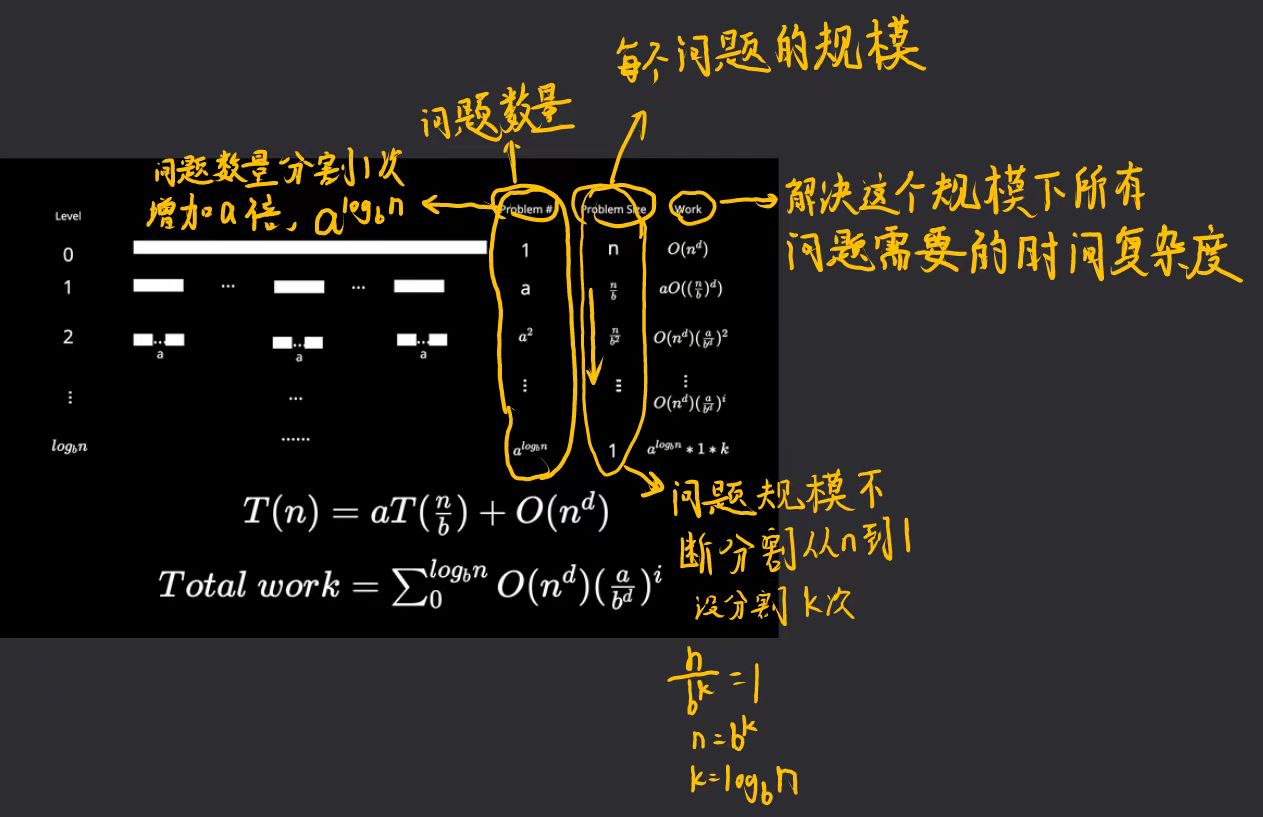 每个问题的规模
问题数量
问题数量分割1次
增加a倍, a^{log_b n}
解决这个规模下所有
问题需要的时间复杂度
Level Problem # Problem Size Work
0 1 n O(n^d)
1 ... ... a \frac{n}{b} aO((\frac{n}{b})^d)
2 ... ... ... a^2 \frac{n}{b^2} O(n^d)(\frac{a}{b^d})^2
a a a
⋮ ... ⋮ ⋮ ⋮
O(n^d)(\frac{a}{b^d})^i
log_b n ...... a^{log_b n} 1 a^{log_b n} * 1 * k
T(n) = aT(\frac{n}{b}) + O(n^d)
Total work = \sum_0^{log_b n} O(n^d)(\frac{a}{b^d})^i
问题规模不
断分割从n到1
设分割k次
\frac{n}{b^k} = 1
n = b^k
k = log_b n